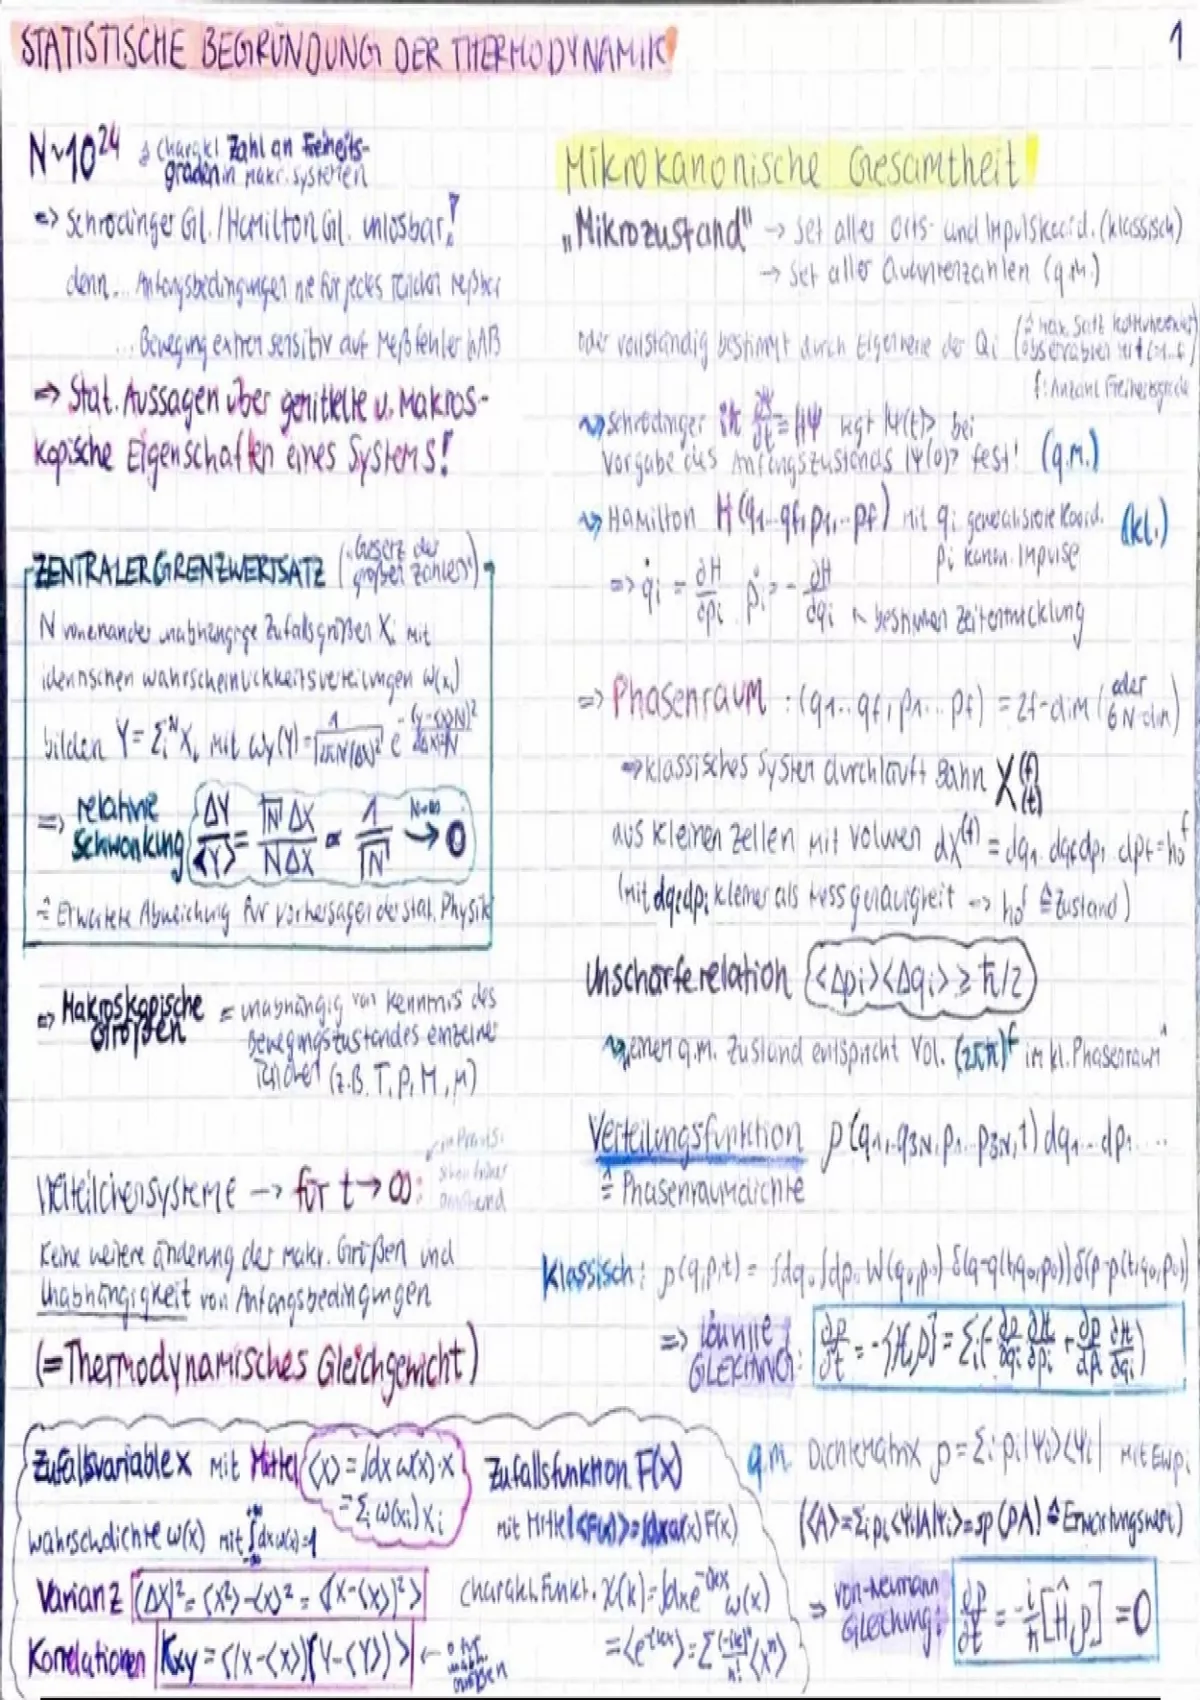 STATISTISCHE BEGRÜNDUNG DER THERMODYNAMIK
1
N~10^24 ≙ charakt. Zahl an Freiheits-
graden in makr. Systemen
=> Schrödinger Gl. / Hamilton Gl. unlösbar!
denn... Anfangsbedingungen nie für jedes Teilchen meßbar
... Bewegung extrem sensitiv auf Meßfehler in AB
=> Stat. Aussagen über gemittelte u. Makros-
kopische Eigenschaften eines Systems!
ZENTRALER GRENZWERTSATZ ("Gesetz der
großen Zahlen")
N voneinander unabhängige Zufallsgrößen Xi mit
identischen Wahrscheinlichkeitsverteilungen w(xi)
bilden Y = Σi^N Xi mit wY(Y) =
=> relative
Schwankung ΔY/<Y> = √N ΔX / N ΔX ∝ 1/√N → 0 N→∞
≙ Erwartete Abweichung für Vorhersagen der stat. Physik
=> Makroskopische
Größen = unabhängig von Kenntnis des
Bewegungszustandes einzelner
Teilchen (z.B. T, P, M, μ)
Vielteilchensysteme -> für t→∞:
in Praxis
schon früher
Keine weitere Änderung der makr. Größen und
Unabhängigkeit von Anfangsbedingungen
(= Thermodynamisches Gleichgewicht)
Zufallsvariable x mit Mittel <x> = ∫dx w(x)·x
= Σi w(xi) xi
Wahrsch.dichte w(x) mit ∫dx w(x)=1
Varianz (Δx)² = <x²>-<x>² = <(x-<x>)²>
Korrelationen Kxy = <(x-<x>)(Y-<Y>)> ←
Zufallsfunktion F(x)
mit Mittel <F(x)> = ∫dx w(x) F(x)
Charakt. Funkt. χ(k) = ∫dx e^-ikx w(x)
= <e^-ikx> = Σ (-ik)^n/n! <x^n>
Mikrokanonische Gesamtheit
„Mikrozustand" -> Set aller Orts- und Impulskoord. (klassisch)
-> Set aller Quantenzahlen (q.m.)
oder vollständig bestimmt durch Eigenwerte der Qi (≙ max. Satz kommutierender
Observablen mit i=1..f)
f: Anzahl Freiheitsgrade
Schrödinger iħ ∂Ψ/∂t = HΨ legt |Ψ(t)> bei
Vorgabe des Anfangszustands |Ψ(0)> fest! (q.m.)
Hamilton H(q1..qf, p1...pf) mit qi generalisierte Koord.
pi kanon. Impulse (kl.)
=> q̇i = ∂H/∂pi ṗi = - ∂H/∂qi bestimmen Zeitentwicklung
=> Phasenraum : (q1..qf, p1...pf) = 2f-dim (oder
6N-dim)
klassisches System durchläuft Bahn X^(f)(t)
aus kleinen Zellen mit Volumen dX^(f) = dq1..dqf dp1..dpf = h0^f
(mit dqi dpi kleiner als Messgenauigkeit -> h0^f ≙ Zustand)
Unschärferelation <Δpi><Δqi> ≥ ħ/2
einem q.m. Zustand entspricht Vol. (2πħ)^f im kl. Phasenraum
Verteilungsfunktion ρ(q1..q3N, p1..p3N, t) dq1...dp1....
≙ Phasenraumdichte
Klassisch: ρ(q,p,t) = ∫dq0 ∫dp0 W(q0,p0) δ(q-q(t,q0,p0)) δ(p-p(t,q0,p0))
=> Liouville
GLEICHUNG: ∂ρ/∂t = -{H,ρ} = Σi(-∂ρ/∂qi ∂H/∂pi + ∂ρ/∂pi ∂H/∂qi)
q.m. Dichtematrix ρ = Σi pi|Ψi><Ψi| mit EW pi
(<A> = Σi pi <Ψi|A|Ψi> = sp(ρA) ≙ Erwartungswert)
=> von-Neumann
Gleichung: ∂ρ/∂t = -i/ħ [Ĥ,ρ] = 0